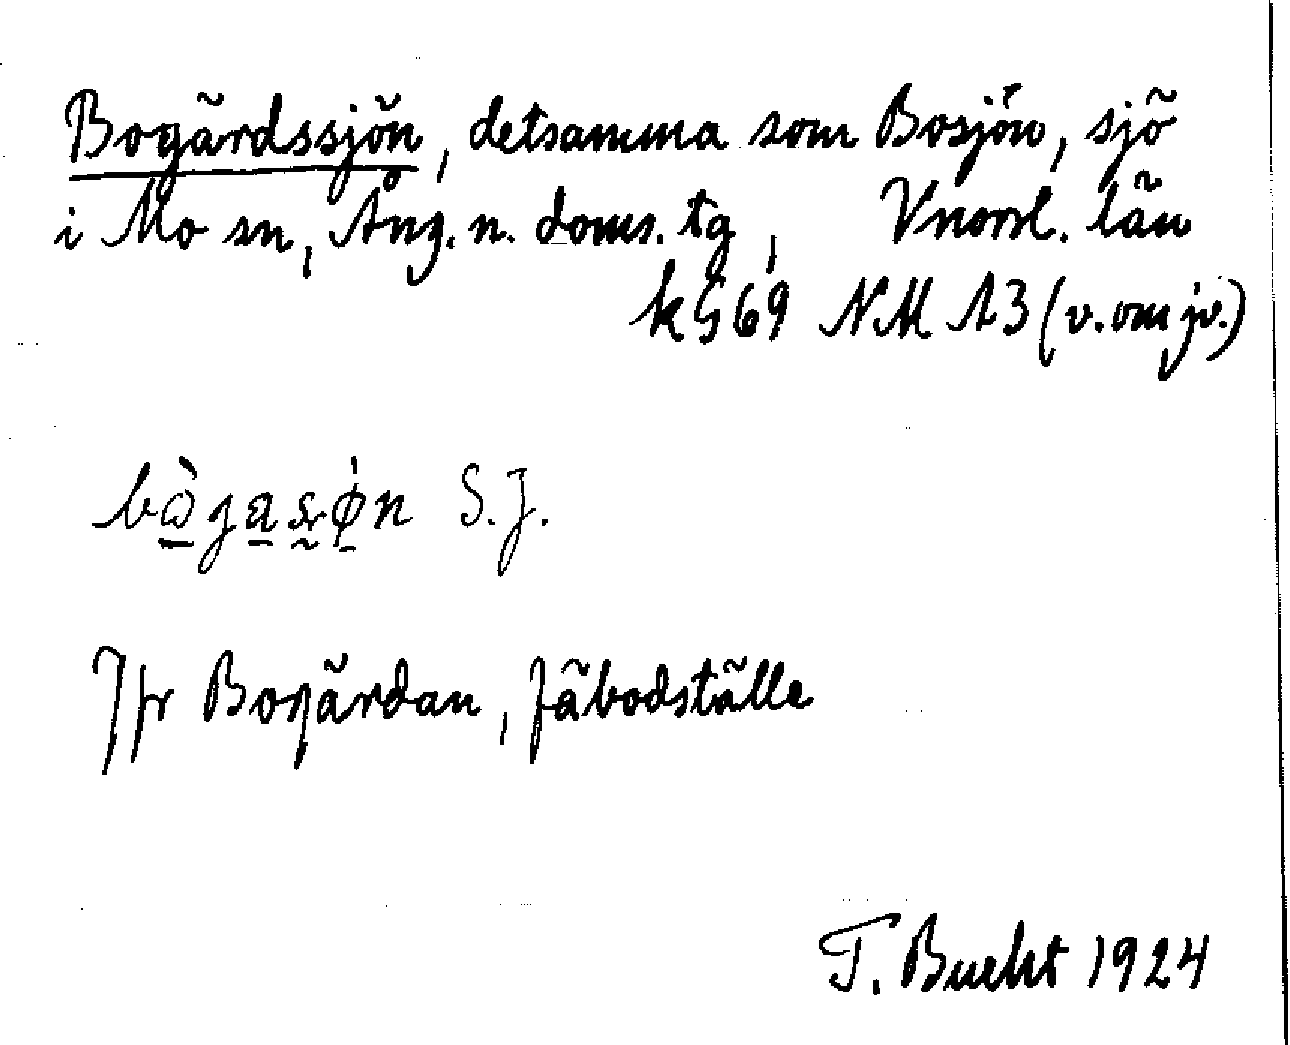 Bogärdssjön, detsamma som Bosjön, sjö
i Mo sn, Ång. n. doms. tg, Vnorrl. län
k G 69 NM A3 (v. om jv.)
S.J.
Jfr Bogärdan, fäbodställe
T. Bucht 1924